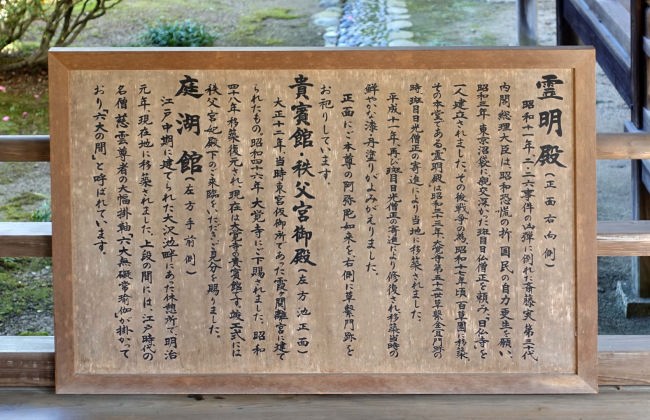 霊明殿(正面右向側)
昭和十一年、二・二六事件の凶弾に倒れた斎藤実・第三十代
内閣総理大臣は、昭和恐慌の折、国民の自力更生を願い、
昭和三年、東京沼袋に親交深かった斑目日仏僧正を頼み、「日仏寺」を
一人建立されました。その後戦争の為、昭和十七年頃百草園に移築、
その本堂である「霊明殿」は、昭和三十三年、大覚寺第五十世草繋全宜門跡の
時、斑目日光僧正の寄進により当地に移築されました。
平成十一年、再び斑目日光僧正の寄進により修復され移築当時の
鮮やかな漆・丹塗りがよみがえりました。
正面にご本尊の阿弥陀如来を、右側に草繋門跡を
お祀りしています。
貴賓館・秩父宮御殿(左方池正面)
大正十二年、当時東宮仮御所であった霞関離宮に建て
られたもの。昭和四六年大覚寺にご下賜されました。昭和
四十八年移築復元され、現在は大覚寺の貴賓館です。竣工式には
秩父宮妃殿下のご来臨をいただき、ご見分を賜りました。
庭湖館(左方手前側)
江戸中期に建てられた大沢池畔にあった休憩所で、明治
元年、現在地に移築されました。上段の間には、江戸時代の
名僧、慈雲尊者の大幅掛軸「六大無礙常瑜伽」が掛かって
おり「六大の間」と呼ばれています。